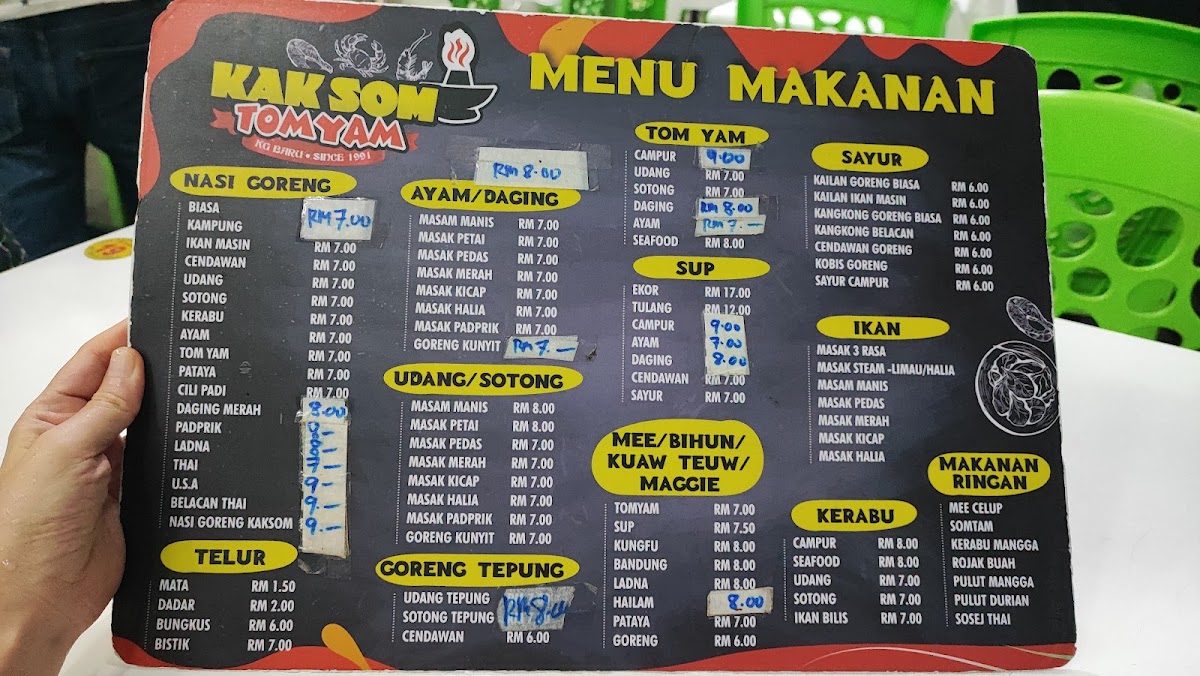 KAK SOM
TOMYAM
KG BARU • SINCE 1991
MENU MAKANAN
NASI GORENG
BIASA
KAMPUNG RM 7.00
IKAN MASIN RM 7.00
CENDAWAN RM 7.00
UDANG RM 7.00
SOTONG RM 7.00
KERABU RM 7.00
AYAM RM 7.00
TOM YAM RM 7.00
PATAYA RM 7.00
CILI PADI RM 7.00
DAGING MERAH 8.00
PADPRIK
LADNA
THAI 7-
U.S.A 9-
BELACAN THAI 9-
NASI GORENG KAKSOM 9-
TELUR
MATA RM 1.50
DADAR RM 2.00
BUNGKUS RM 6.00
BISTIK RM 7.00
RM 8.00
AYAM/DAGING
MASAM MANIS RM 7.00
MASAK PETAI RM 7.00
MASAK PEDAS RM 7.00
MASAK MERAH RM 7.00
MASAK KICAP RM 7.00
MASAK HALIA RM 7.00
MASAK PADPRIK RM 7.00
GORENG KUNYIT RM 7.-
UDANG/SOTONG
MASAM MANIS RM 8.00
MASAK PETAI RM 8.00
MASAK PEDAS RM 7.00
MASAK MERAH RM 7.00
MASAK KICAP RM 7.00
MASAK HALIA RM 7.00
MASAK PADPRIK RM 7.00
GORENG KUNYIT RM 7.00
GORENG TEPUNG
UDANG TEPUNG
SOTONG TEPUNG RM 8.00
CENDAWAN RM 6.00
TOM YAM
CAMPUR 9.00
UDANG RM 7.00
SOTONG RM 7.00
DAGING RM 8.00
AYAM RM 7.-
SEAFOOD RM 8.00
SUP
EKOR RM 17.00
TULANG RM 12.00
CAMPUR 9.00
AYAM 7.00
DAGING 8.00
CENDAWAN RM 7.00
SAYUR RM 7.00
MEE/BIHUN/
KUAW TEUW/
MAGGIE
TOMYAM RM 7.00
SUP RM 7.50
KUNGFU RM 8.00
BANDUNG RM 8.00
LADNA RM 8.00
HAILAM 8.00
PATAYA RM 7.00
GORENG RM 6.00
SAYUR
KAILAN GORENG BIASA RM 6.00
KAILAN IKAN MASIN RM 6.00
KANGKONG GORENG BIASA RM 6.00
KANGKONG BELACAN RM 6.00
CENDAWAN GORENG RM 6.00
KOBIS GORENG RM 6.00
SAYUR CAMPUR RM 6.00
IKAN
MASAK 3 RASA
MASAK STEAM -LIMAU/HALIA
MASAM MANIS
MASAK PEDAS
MASAK MERAH
MASAK KICAP
MASAK HALIA
KERABU
CAMPUR RM 8.00
SEAFOOD RM 8.00
UDANG RM 7.00
SOTONG RM 7.00
IKAN BILIS RM 7.00
MAKANAN
RINGAN
MEE CELUP
SOMTAM
KERABU MANGGA
ROJAK BUAH
PULUT MANGGA
PULUT DURIAN
SOSEJ THAI